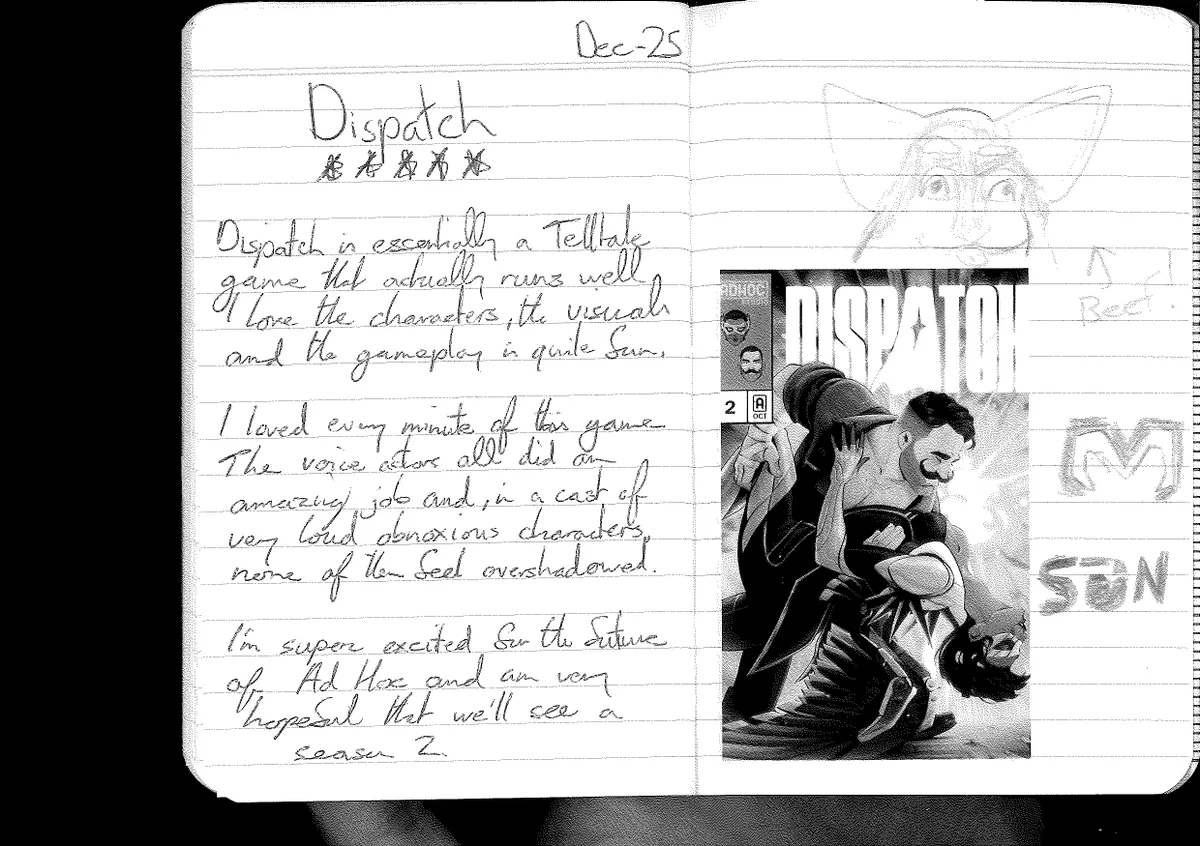 Dec-25
Dispatch
Dispatch is essentially a Telltale
game that actually runs well
I love the characters, the visuals
and the gameplay is quite fun.
I loved every minute of this game
The voice actors all did an
amazing job and, in a cast of
very loud obnoxious characters,
none of them feel overshadowed.
I'm super excited for the future
of Ad Hoc and am very
hopeful that we'll see a
season 2.
Beef!
ADHOC
DISPATCH
2
A
OCT
M
SDN